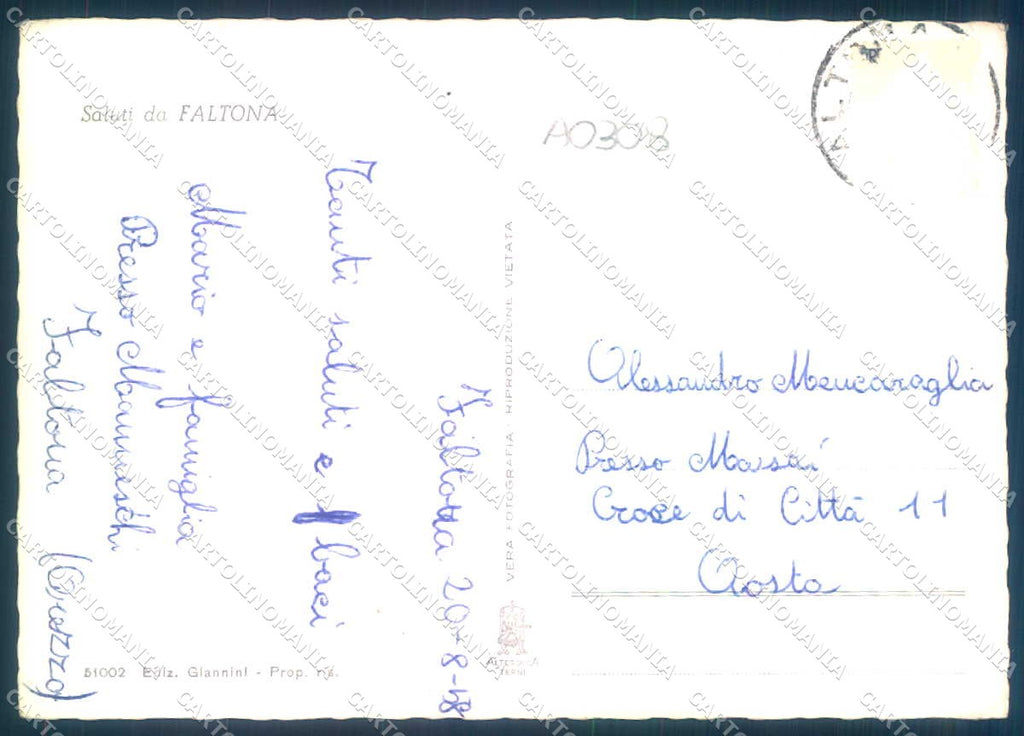 Saluti da FALTONA
A0308
Faltona 20-8-58
Tanti saluti e baci
Mario e famiglia
Presso Manneschi
Faltona (Arezzo)
VERA FOTOGRAFIA. RIPRODUZIONE VIETATA
Alessandro Mencaraglia
Presso Massai
Croce di Città 11
Aosta
ALTEROCCA
TERNI
51002 Ediz. Giannini - Prop. ris.
CARTOLINOMANIA